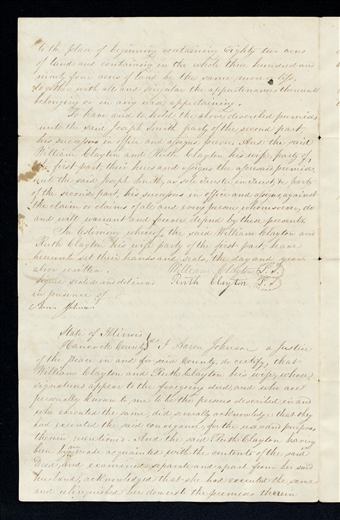 to the place of beginning containing Eighty two acres
of land and containing in the whole three hundred and
ninety four acres of land be the same more or less.
Together with all and singular the appurtenances thereunto
belonging or in any wise appertaining.
To have and to hold the above described premises
unto the said Joseph Smith party of the second part
his successors in office and assigns forever. And the said
William Clayton and Ruth Clayton his wife party of
first part their heirs and assigns the aforesaid premises
unto the said Joseph Smith, as sole Trustee in trust, & party
of the second part, his successors in office and assigns, against
the claim or claims of all and every person whomsoever, do
and will warrant and forever defend by these presents.
In testimony whereof, the said William Clayton and
Ruth Clayton his wife party of the first part, have
hereunto set their hands and seals, the day and year
above written.
William Clayton L.S.
Signed sealed and delivered
Ruth Clayton L.S.
in presence of
Aaron Johnson
State of Illinois
Hancock County I Aaron Johnson a Justice
of the Peace in and for said County do certify, that
William Clayton and Ruth Clayton his wife, whose
signatures appear to the foregoing deed, and who are
personally known to me to be the persons described in and
who executed the same, did severally acknowledge that they
had executed the said conveyance for the uses and purposes
therein mentioned. And the said Ruth Clayton having
been made acquainted with the contents of the said
Deed, and examined separate and apart from her said
husband, acknowledged that she had executed the same
and relinquished her dower to the premises therein